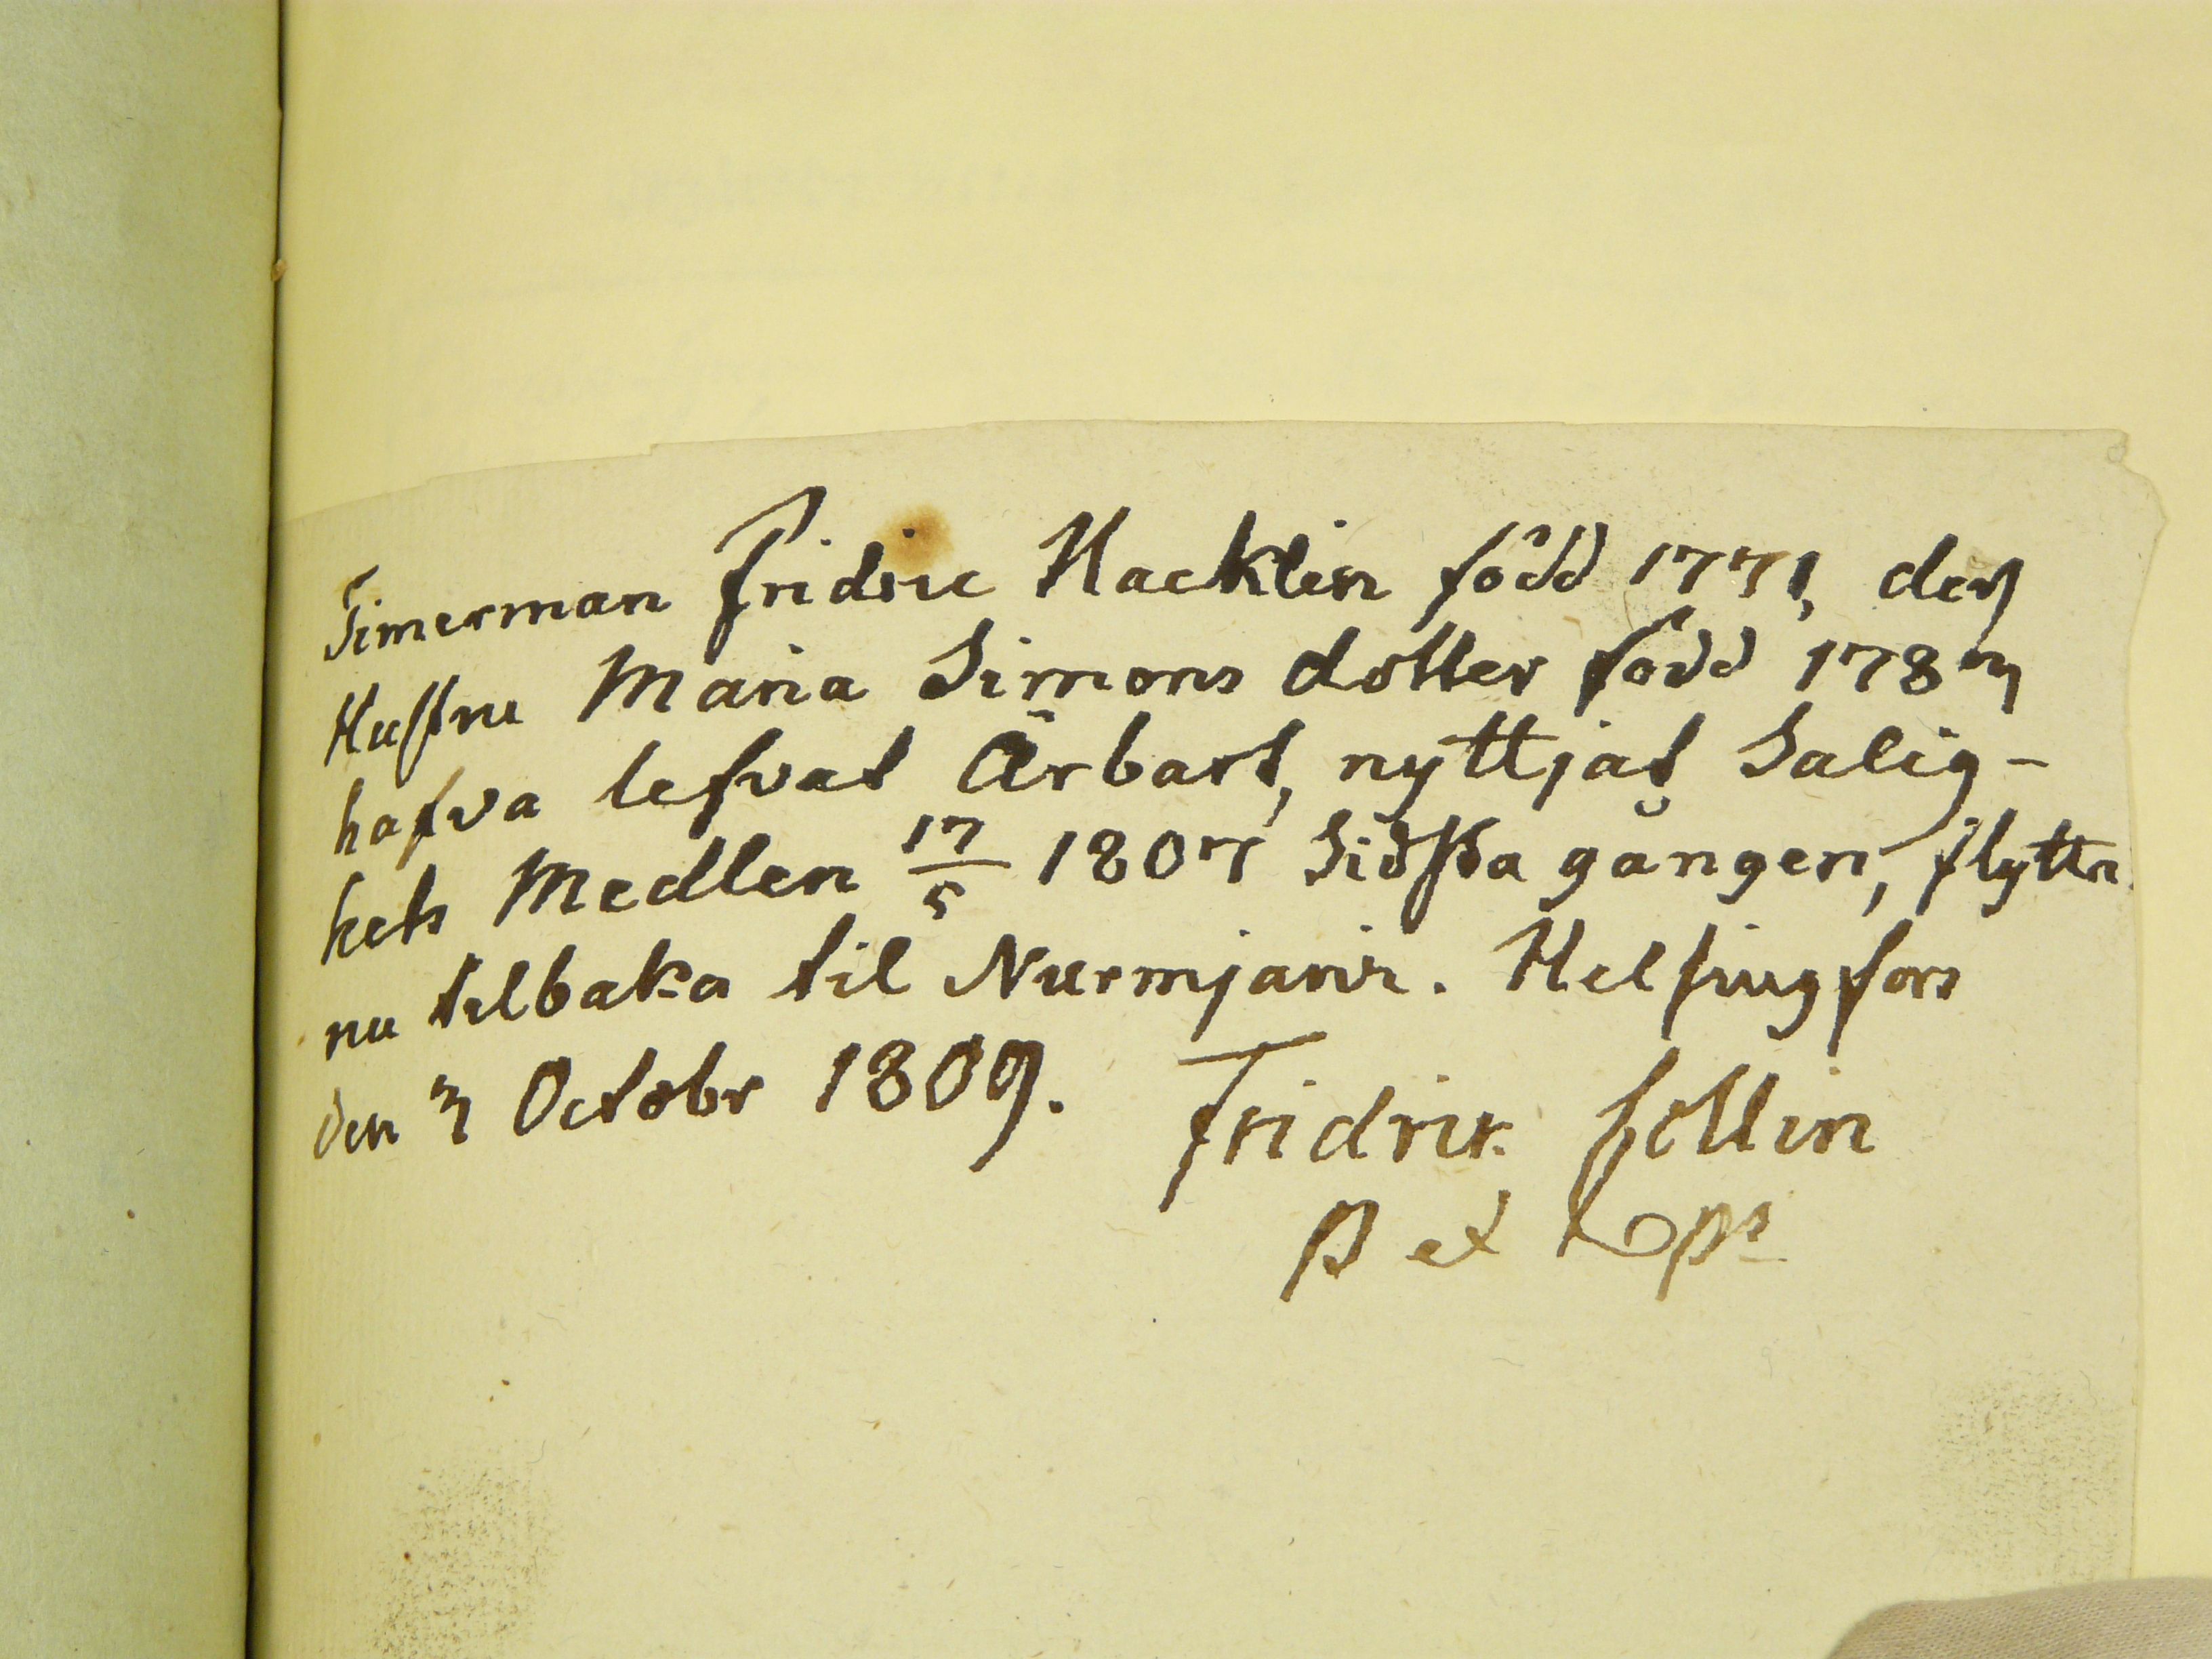 Timerman Fridric Hacklin född 1771, dess
Hustru Maria Simons dotter född 1787
hafva lefvat Ärbart, nyttjat Salig-
hets Medlen 17/5 1807 Sidsta gången, flytta
nu tilbaka til Nurmijarvi. Helsingfors
den 3 Octobr 1809. Fridrik
P et